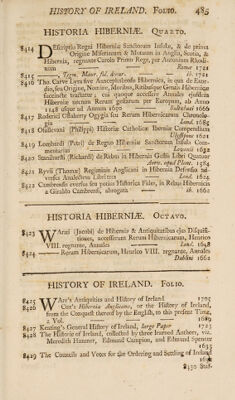 HISTORY OF IRELAND. FOLIO. 485
HISTORIA HIBERNIÆ. QUARTO.
8414 DEscriptio Regni Hiberniæ Sanctorum Insulæ, & de prima
Origine Miseriarum & Motuum in Anglia, Scotia, &
Hibernia, regnante Carolo Primo Rege, per Antonium
Romæ 1721
8415 Idem. Maior, fol. ib. 1721
8416 Tho. Carve Lyra sive Anacephalæosis Hibernica, in qua de
Origine, Nomine, Moribus, Ritibusque Gentis Hibernicæ
succincte tractatur; cui quoque accessere Annales ejusdem
Hiberniæ necnon Rerum gestarum per Europam, ab Anno
1148 usque ad Annum 1650 Sulzbaci 1666
8417 Roderici Oflaherty Ogygia seu Rerum Hibernicarum
Lond. 1685
8418 Osullevani (Philippi) Historiæ Catholicæ Iberniæ Compendium
Ulyssipone 1621
8419 Lombardi (Petri) de Regno Hiberniæ Sanctorum Insula
Lovanii 1632
8420 Stanihursti (Richardi) de Rebus in Hibernia Gestis Libri Quatuor
Antv. apud Plant. 1584
8421 Ryvii (Thomæ) Regiminis Anglicani in Hibernia Defensio
versus Analecten Libri tres Lond. 1624
8422 Cambrensis eversus seu potius Historica Fides, in Rebus Hibernicis
a Giraldo Cambrensi, abrogata ib. 1662
HISTORIA HIBERNIÆ. OCTAVO.
8423 WAræi (Jacobi) de Hibernia & Antiquitatibus ejus
accesserunt Rerum Hibernicarum, Henrico
VIII. regnante, Annales Lond.
8424 Rerum Hibernicarum, Henrico VIII. regnante, Annales
Dublini 1662
HISTORY OF IRELAND. FOLIO.
8425 WAre's Antiquities and History of Ireland 1705
8426 Cox's Hibernia Anglicana, or the History of Ireland,
from the Conquest thereof by the English, to this present Time,
2 Vol. 1689
8427 Keating's General History of Ireland, large Paper 1723
8428 The Historie of Ireland, collected by three learned Authors, viz.
Meredith Hanmer, Edmund Campion, and Edmund Spenser
1633
8429 The Councils and Votes for the Ordering and Settling of Ireland
8430 Stat.